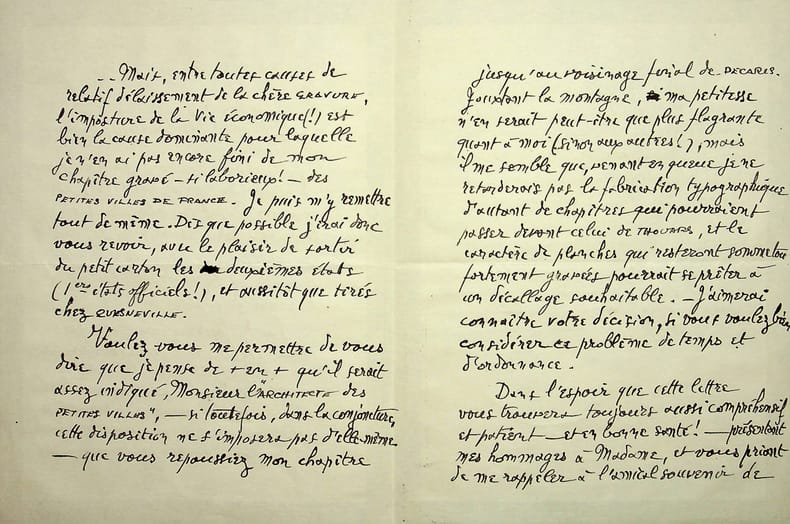 -- Mais, entre toutes causes de
relatif délaissement de la chère GRAVURE,
l'imposture de la Vie économique (!) est
bien la cause dominante pour laquelle
je n'en ai pas encore fini de mon
chapitre gravé – si laborieux! – des
PETITES VILLES DE FRANCE. Je puis m'y remettre
tout de même. Dès que possible j'irai donc
vous revoir, avec le plaisir de sortir
du petit carton les deuxièmes états
(1ers états officiels!), et aussitôt que tirés
chez
Voulez vous me permettre de vous
dire que je pense de + en + qu'il serait
assez indiqué, Monsieur l'"ARCHITECTE des
PETITES VILLES", – si toutefois, dans la conjoncture,
cette disposition ne s'imposera pas d'elle-même
– que vous repoussiez mon chapitre
jusqu'au voisinage final de DECARIS.
Jouxtant la montagne, ma petitesse
n'en serait peut-être que plus flagrante
quant à moi (sinon aux autres!), mais
il me semble que, venant en queue je ne
retarderais pas la fabrication typographique
d'autant de chapitres qui pourraient
passer devant celui de THOUARS, et le
caractère de planches qui resteront somme tou
fortement gravées pourrait se prêter à
un décallage souhaitable. – J'aimerai
connaître votre décision, si vous voulez bien
considérer ce problème de temps et
d'ordonnance.
Dans l'espoir que cette lettre
vous trouvera toujours aussi compréhensif
et patient – et en bonne santé! – présentant
mes hommages à Madame, et vous priant
de me rappeler à l'amical souvenir de